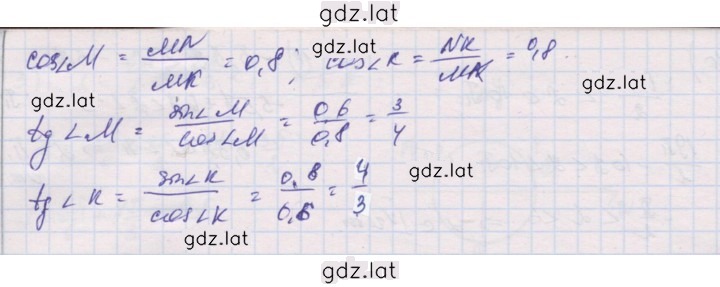 gdz.lat
cos∠M = MN/MK = 0,8; cos∠K = NK/MK = 0,8
gdz.lat
tg∠M = sin∠M/cos∠M = 0,6/0,8 = 3/4
gdz.lat
tg∠K = sin∠K/cos∠K = 0,8/0,6 = 4/3
gdz.lat
gdz.lat